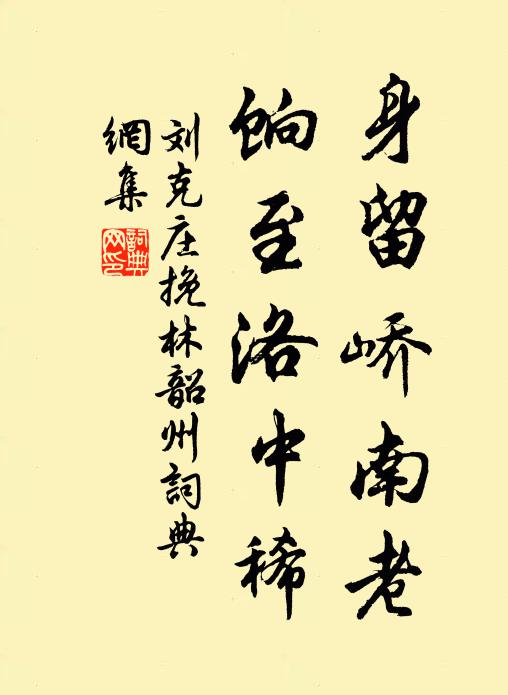 身留峤南老
饷至洛中稀
刘克庄挽林韶州詞典
網集
詞典
网印